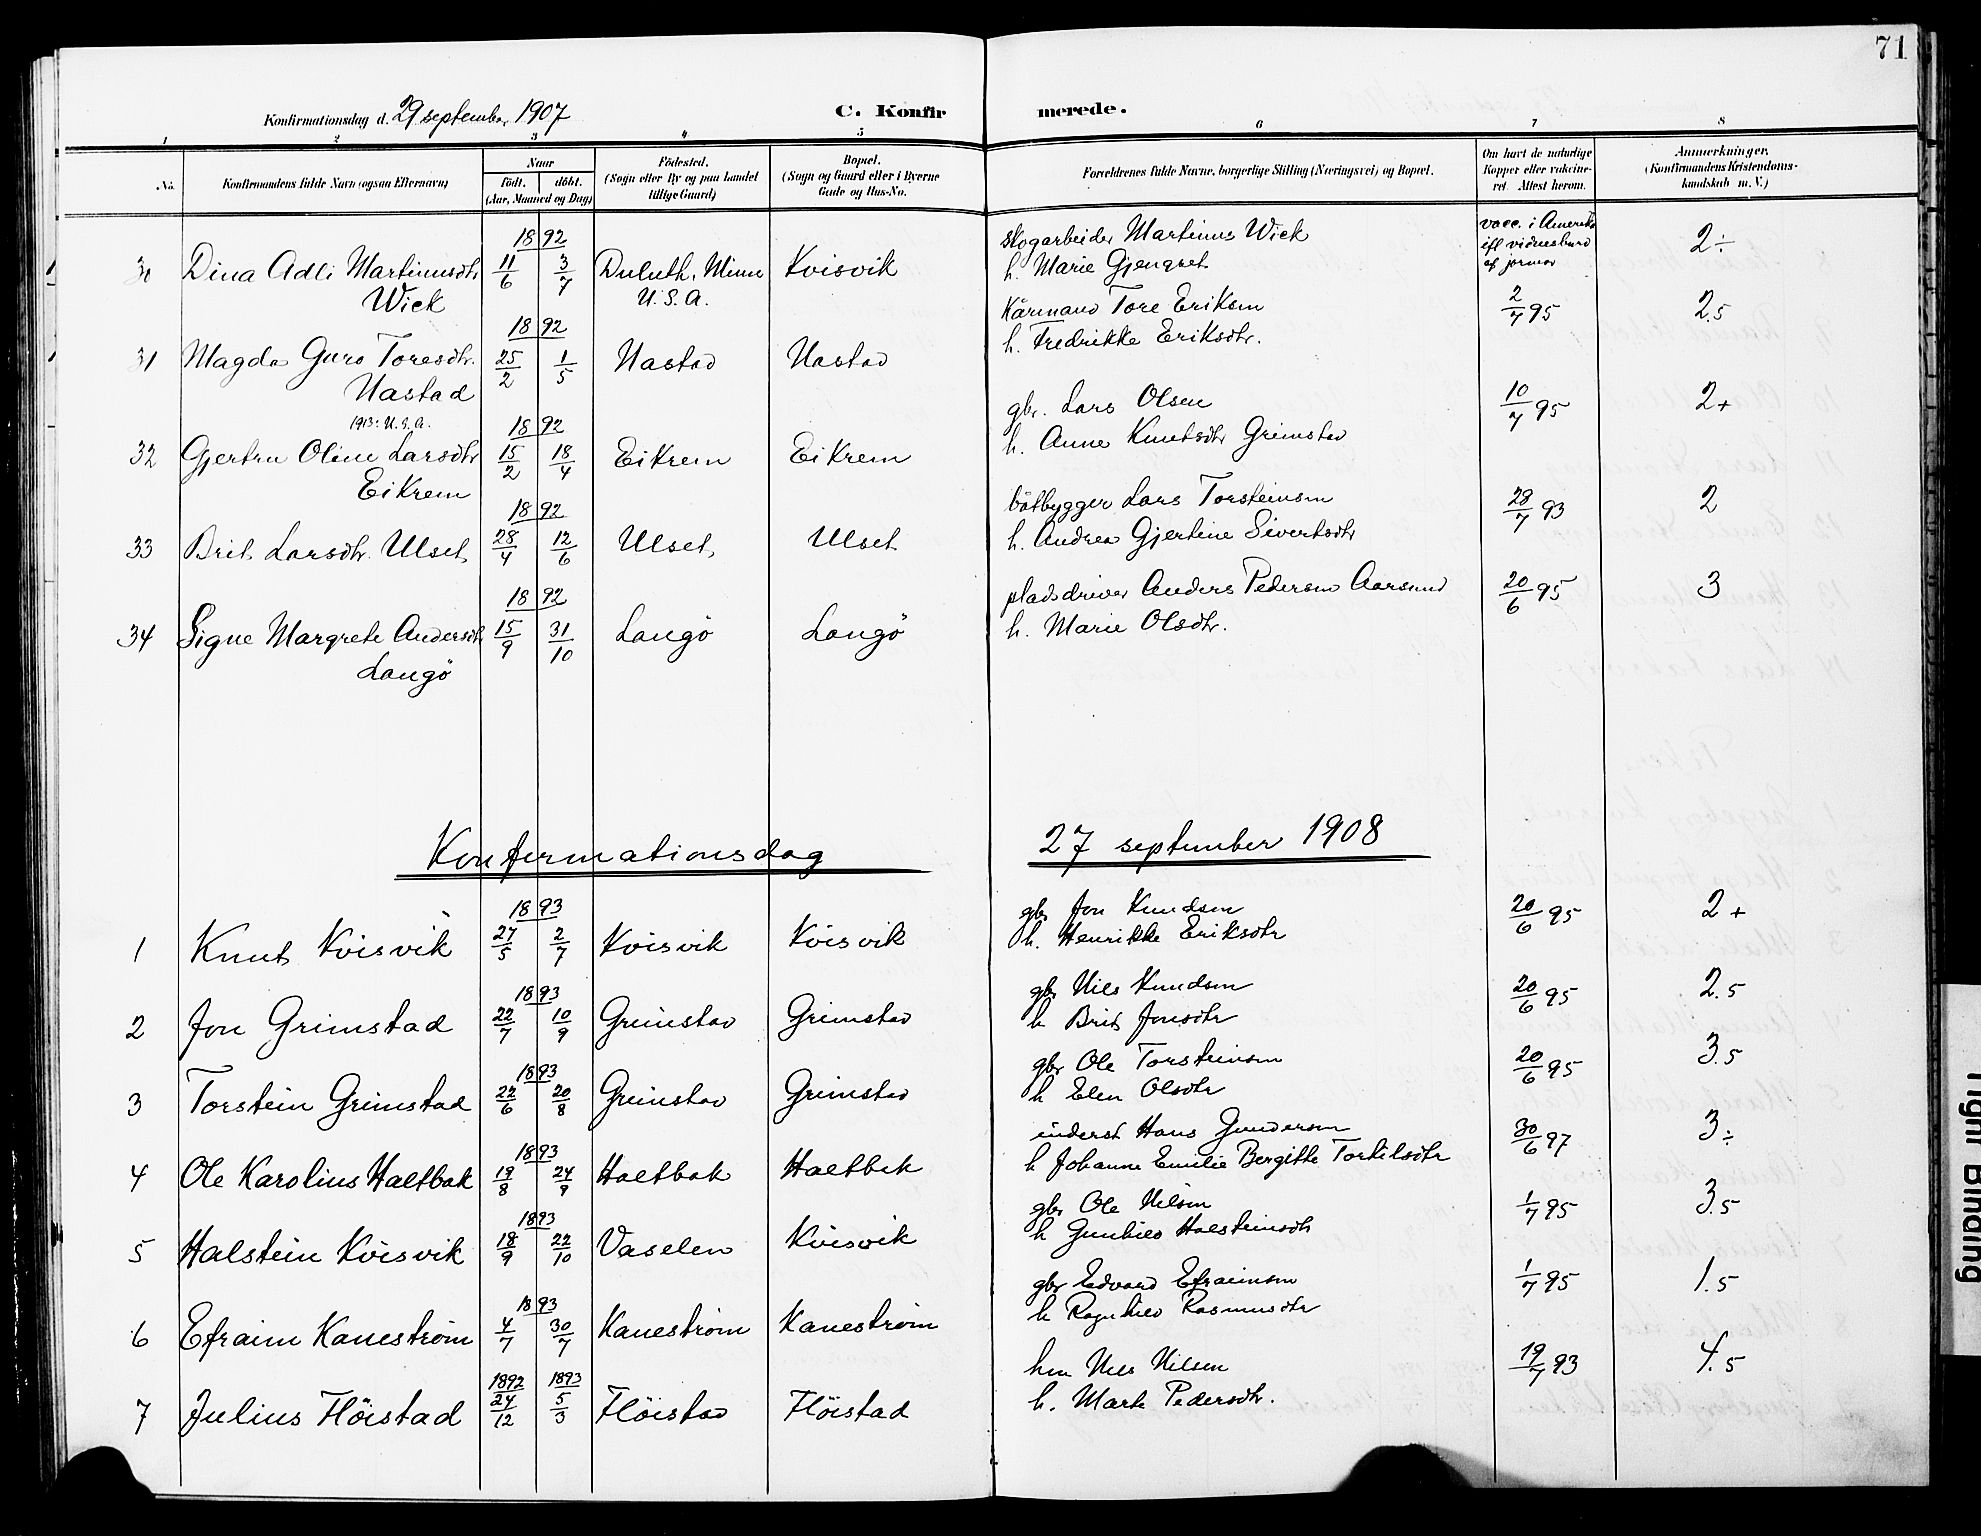 71
Konfirmationsdag d. 29 september 1907
C. Konfirmerede.
1 2 3 4 5 6 7 8
No.
Konfirmandens fulde Navn (ogsaa Efternavn)
Naar
født. døbt.
(Aar, Maaned og Dag)
Födested.
(Sogn eller By og paa Landet
tillige Gaard)
Bopæl.
(Sogn og Gaard eller i Byerne
Gade og Hus-No.
Forældrenes fulde Navne, borgerlige Stilling (Næringsvei) og Bopæl.
Om havt de naturlige
Kopper eller vakcine-
ret. Attest herom.
Anmerkninger.
(Konfirmandens Kristendoms-
kundskab m. V.)
1892
30 Dina Adli Martinusdtr 11/6 3/7 Duluth, Minn Kvisvik
Wick U.S.A.
skogarbeider Martinus Wick
h. Marie Gjengset
vacc. i Amerika
ifl vidnesburd
af jormor
2÷
1892
31 Magda Guro Toresdtr. 25/2 1/5 Nastad Nastad
Nastad
Kårmand Tore Eriksen
h. Fredrikke Eriksdtr.
2/7 95 2.5
1913: U.S.A.
1892
32 Gjertru Oline Larsdtr 15/2 18/4 Eikrem Eikrem
Eikrem
gbr. Lars Olsen
h. Anne Knutsdtr Grimstad
10/7 95 2+
1892
33 Brit Larsdtr. Ulset 28/4 12/6 Ulset Ulset
båtbygger Lars Torsteinsen
h. Andrea Gjertine Sivertsdtr
28/7 93 2
1892
34 Signe Margrete Andersdt 15/9 31/10 Langö Langö
Langö
pladsdriver Anders Pedersen Aarsund
h. Marie Olsdtr.
20/6 95 3
Konfirmationsdag 27 september 1908
1893
1 Knut Kvisvik 27/5 2/7 Kvisvik Kvisvik
gbr Jon Knudsen
h. Henrikke Eriksdtr
20/6 95 2+
1893
2 Jon Grimstad 22/7 10/9 Grimstad Grimstad
gbr Nils Knudsen
h Brit Jonsdtr
20/6 95 2.5
1893
3 Torstein Grimstad 22/6 20/8 Grimstad Grimstad
gbr Ole Torsteinsen
h Elen Olsdtr
20/6 95 3.5
1893
4 Ole Karolius Haltbak 19/8 24/9 Haltbak Haltbak
inderst Hans Gundersen
h Johanne Emilie Bergitte Torkilsdtr
30/6 97 3÷
1893
5 Halstein Kvisvik 18/9 22/10 Vaselen Kvisvik
gbr Ole Nilsen
h Gunhild Halsteinsdtr
1/7 95 3.5
1893
6 Efraim Kanestrøm 4/7 30/7 Kanestrøm Kanestrøm
gbr Edvard Efraimsen
h Ragnhild Rasmusdtr
1/7 95 1.5
1892 1893
7 Julius Flöistad 24/12 5/3 Flöistad Flöistad
hm Nils Nilsen
h. Marte Pedersdtr.
19/7 93 4.5
Tight Binding